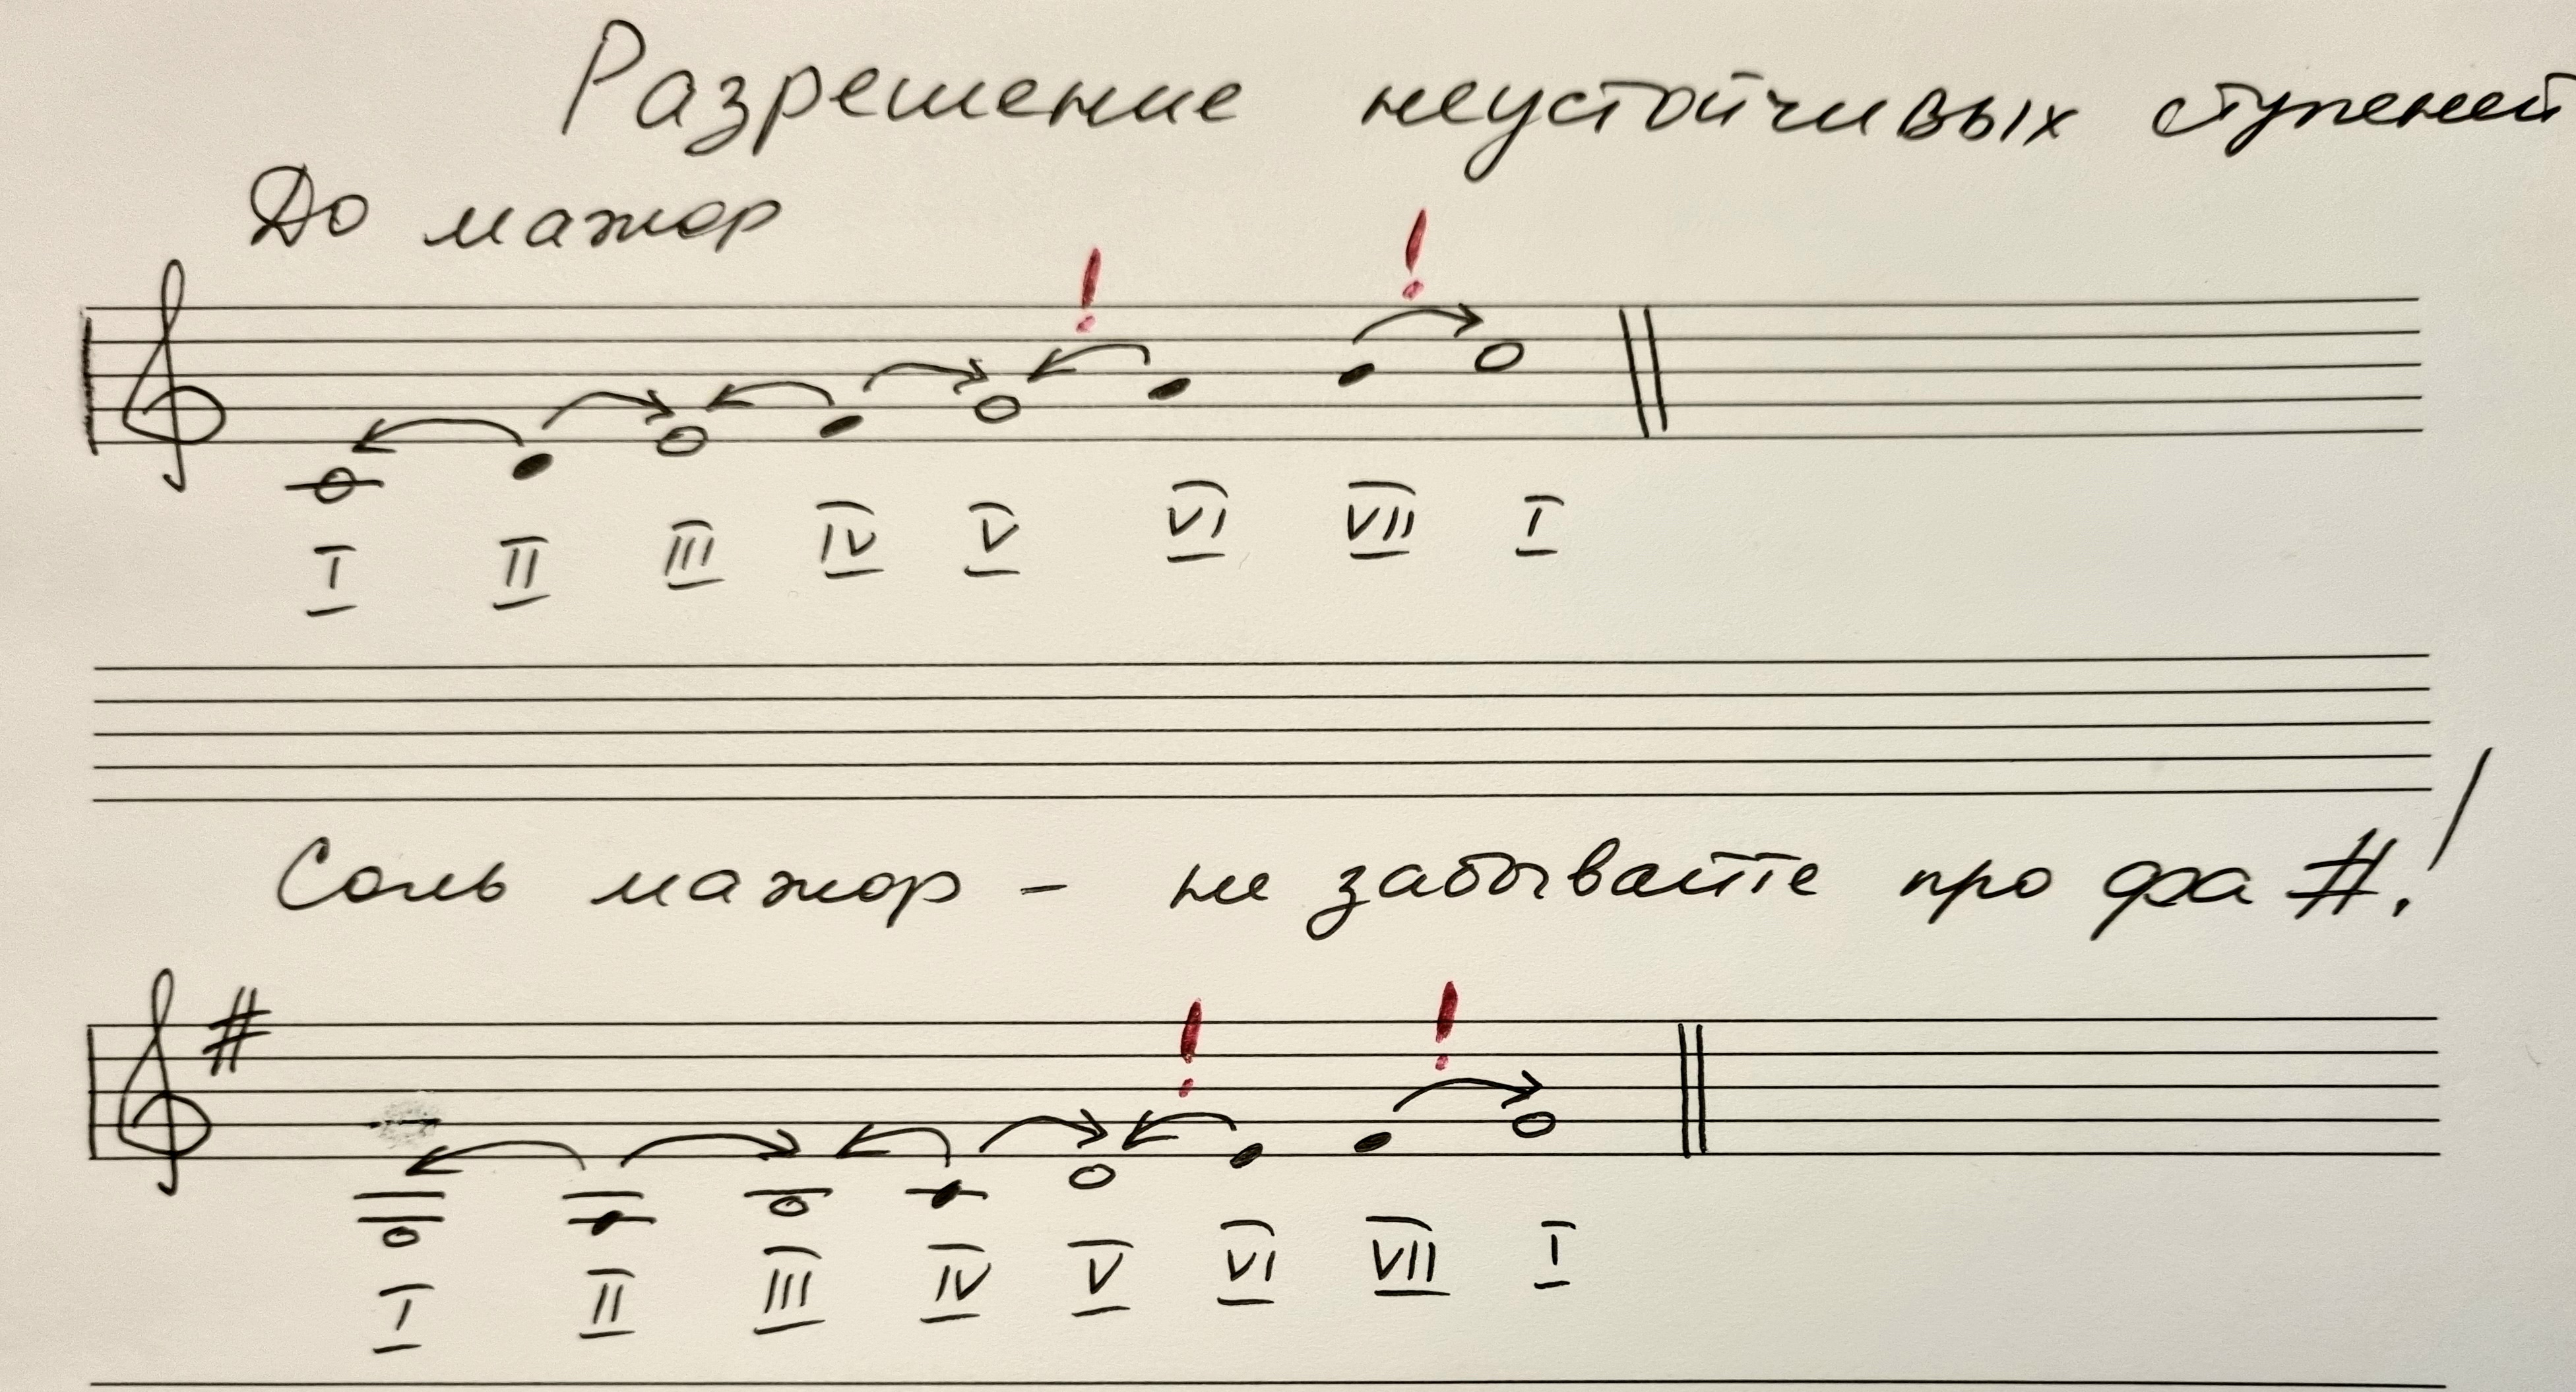 Разрешение неустойчивых ступеней
До мажор
! !
I II III IV V VI VII I
Соль мажор - не забывайте про фа #!
#
! !
I II III IV V VI VII I